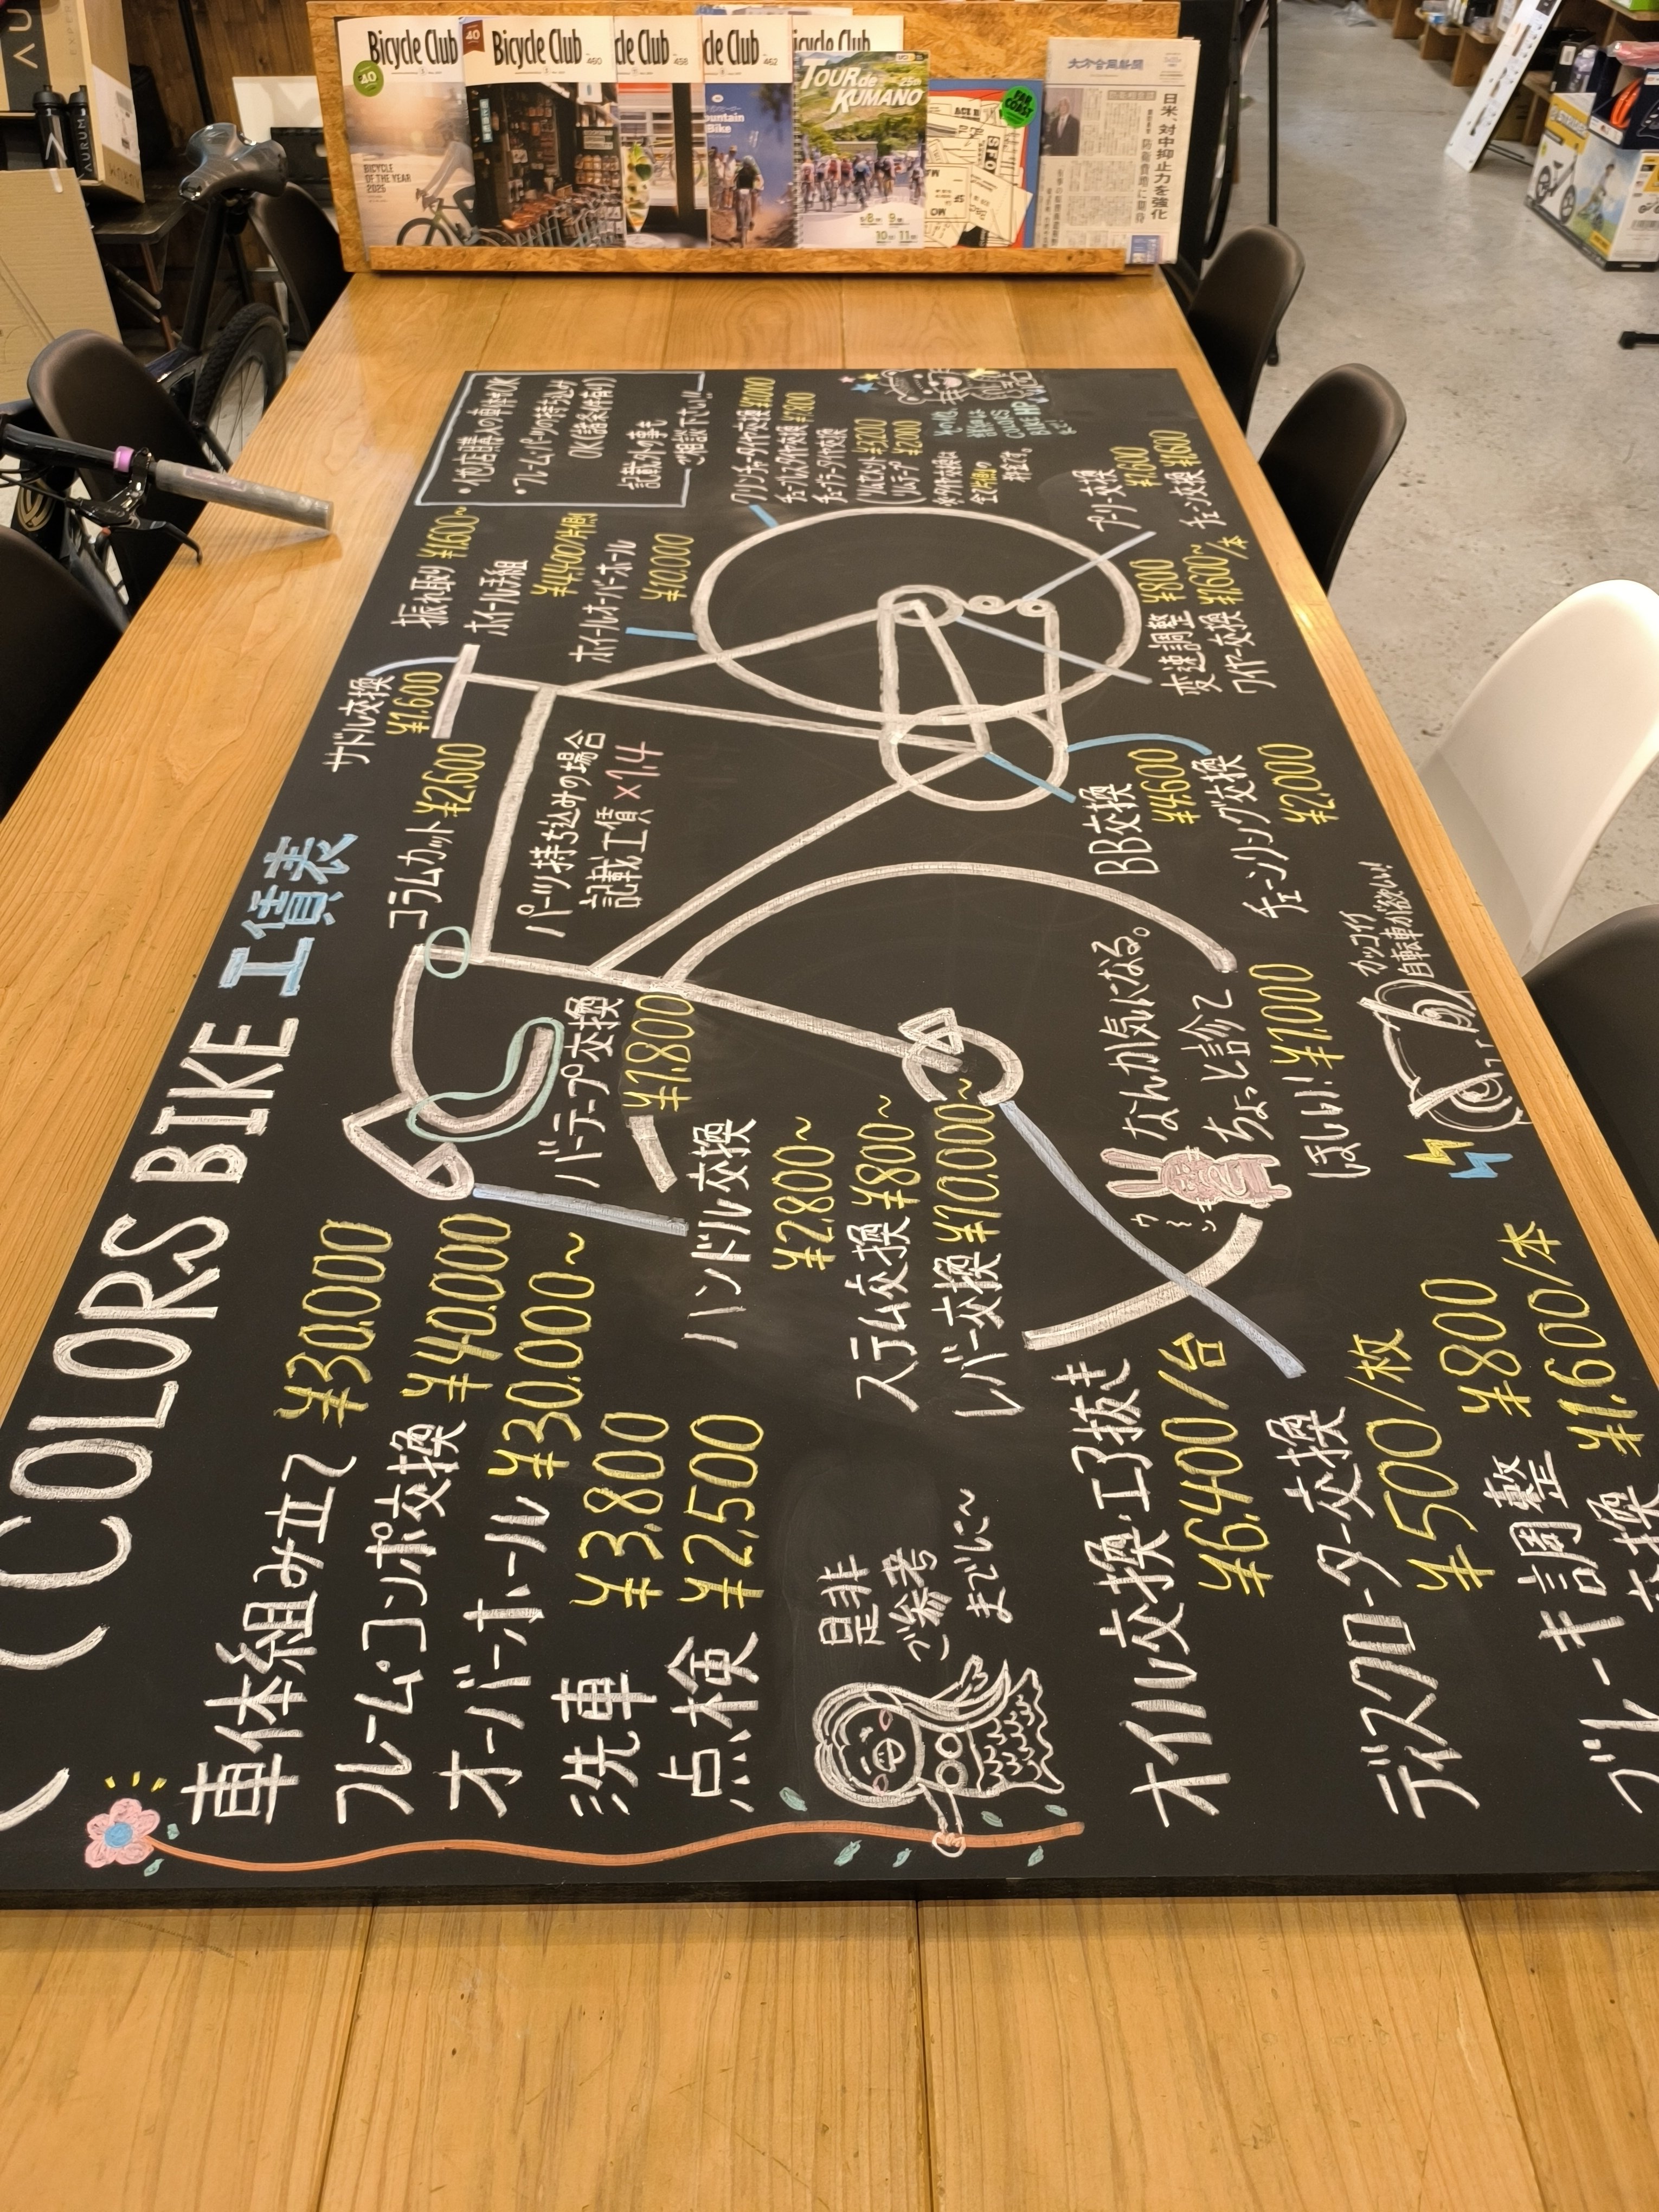 Bicycle Club
BICYCLE
OF THE YEAR
2025
Bicycle Club
460
cle Club
458
cle Club
462
Mountain
Bike
icycle Club
TOUR de
KUMANO
25th
FAR
COAST
大分合同新聞
日米、対中抑止力を強化
防衛費増に期待
AURUM
COLORS BIKE 工賃表
車体組み立て ¥30,000
フレーム・コンポ交換 ¥40,000
オーバーホール ¥30,000~
洗車 ¥3,800
点検 ¥2,500
是非
ご参考
までに~
コラムカット ¥2,600
サドル交換
¥1,600
振れ取り ¥1,600~
ホイール手組
¥4,400/片側
ホイールオーバーホール
¥10,000
・他店購入の車体もOK
・フレーム・パーツの持ち込み
OK(諸条件有り)
記載外の事も
ご相談下さい!!
パーツ持ち込みの場合
記載工賃×1.4
バーテープ交換
¥1,800
ハンドル交換
¥2,800~
ステム交換 ¥800~
レバー交換 ¥10,000~
クリンチャータイヤ交換 ¥1,000
チューブレスタイヤ交換 ¥1,800
チューブラータイヤ交換
リムセメント ¥3,200
リムテープ ¥2,000
※タイヤ交換は
全て片側の
料金です。
プーリー交換
¥1,600
チェーン交換 ¥1,600
変速調整 ¥800
ワイヤー交換 ¥1,600~/本
BB交換
¥4,600
チェーンリング交換
¥2,000
なんか気になる。
ちょっと診て
ほしい! ¥1,000
カッコイイ
自転車が欲しい!
オイル交換・エア抜き
¥6,400/台
ディスクローター交換
¥500/枚
ブレーキ調整 ¥800
交換 ¥1,600/本